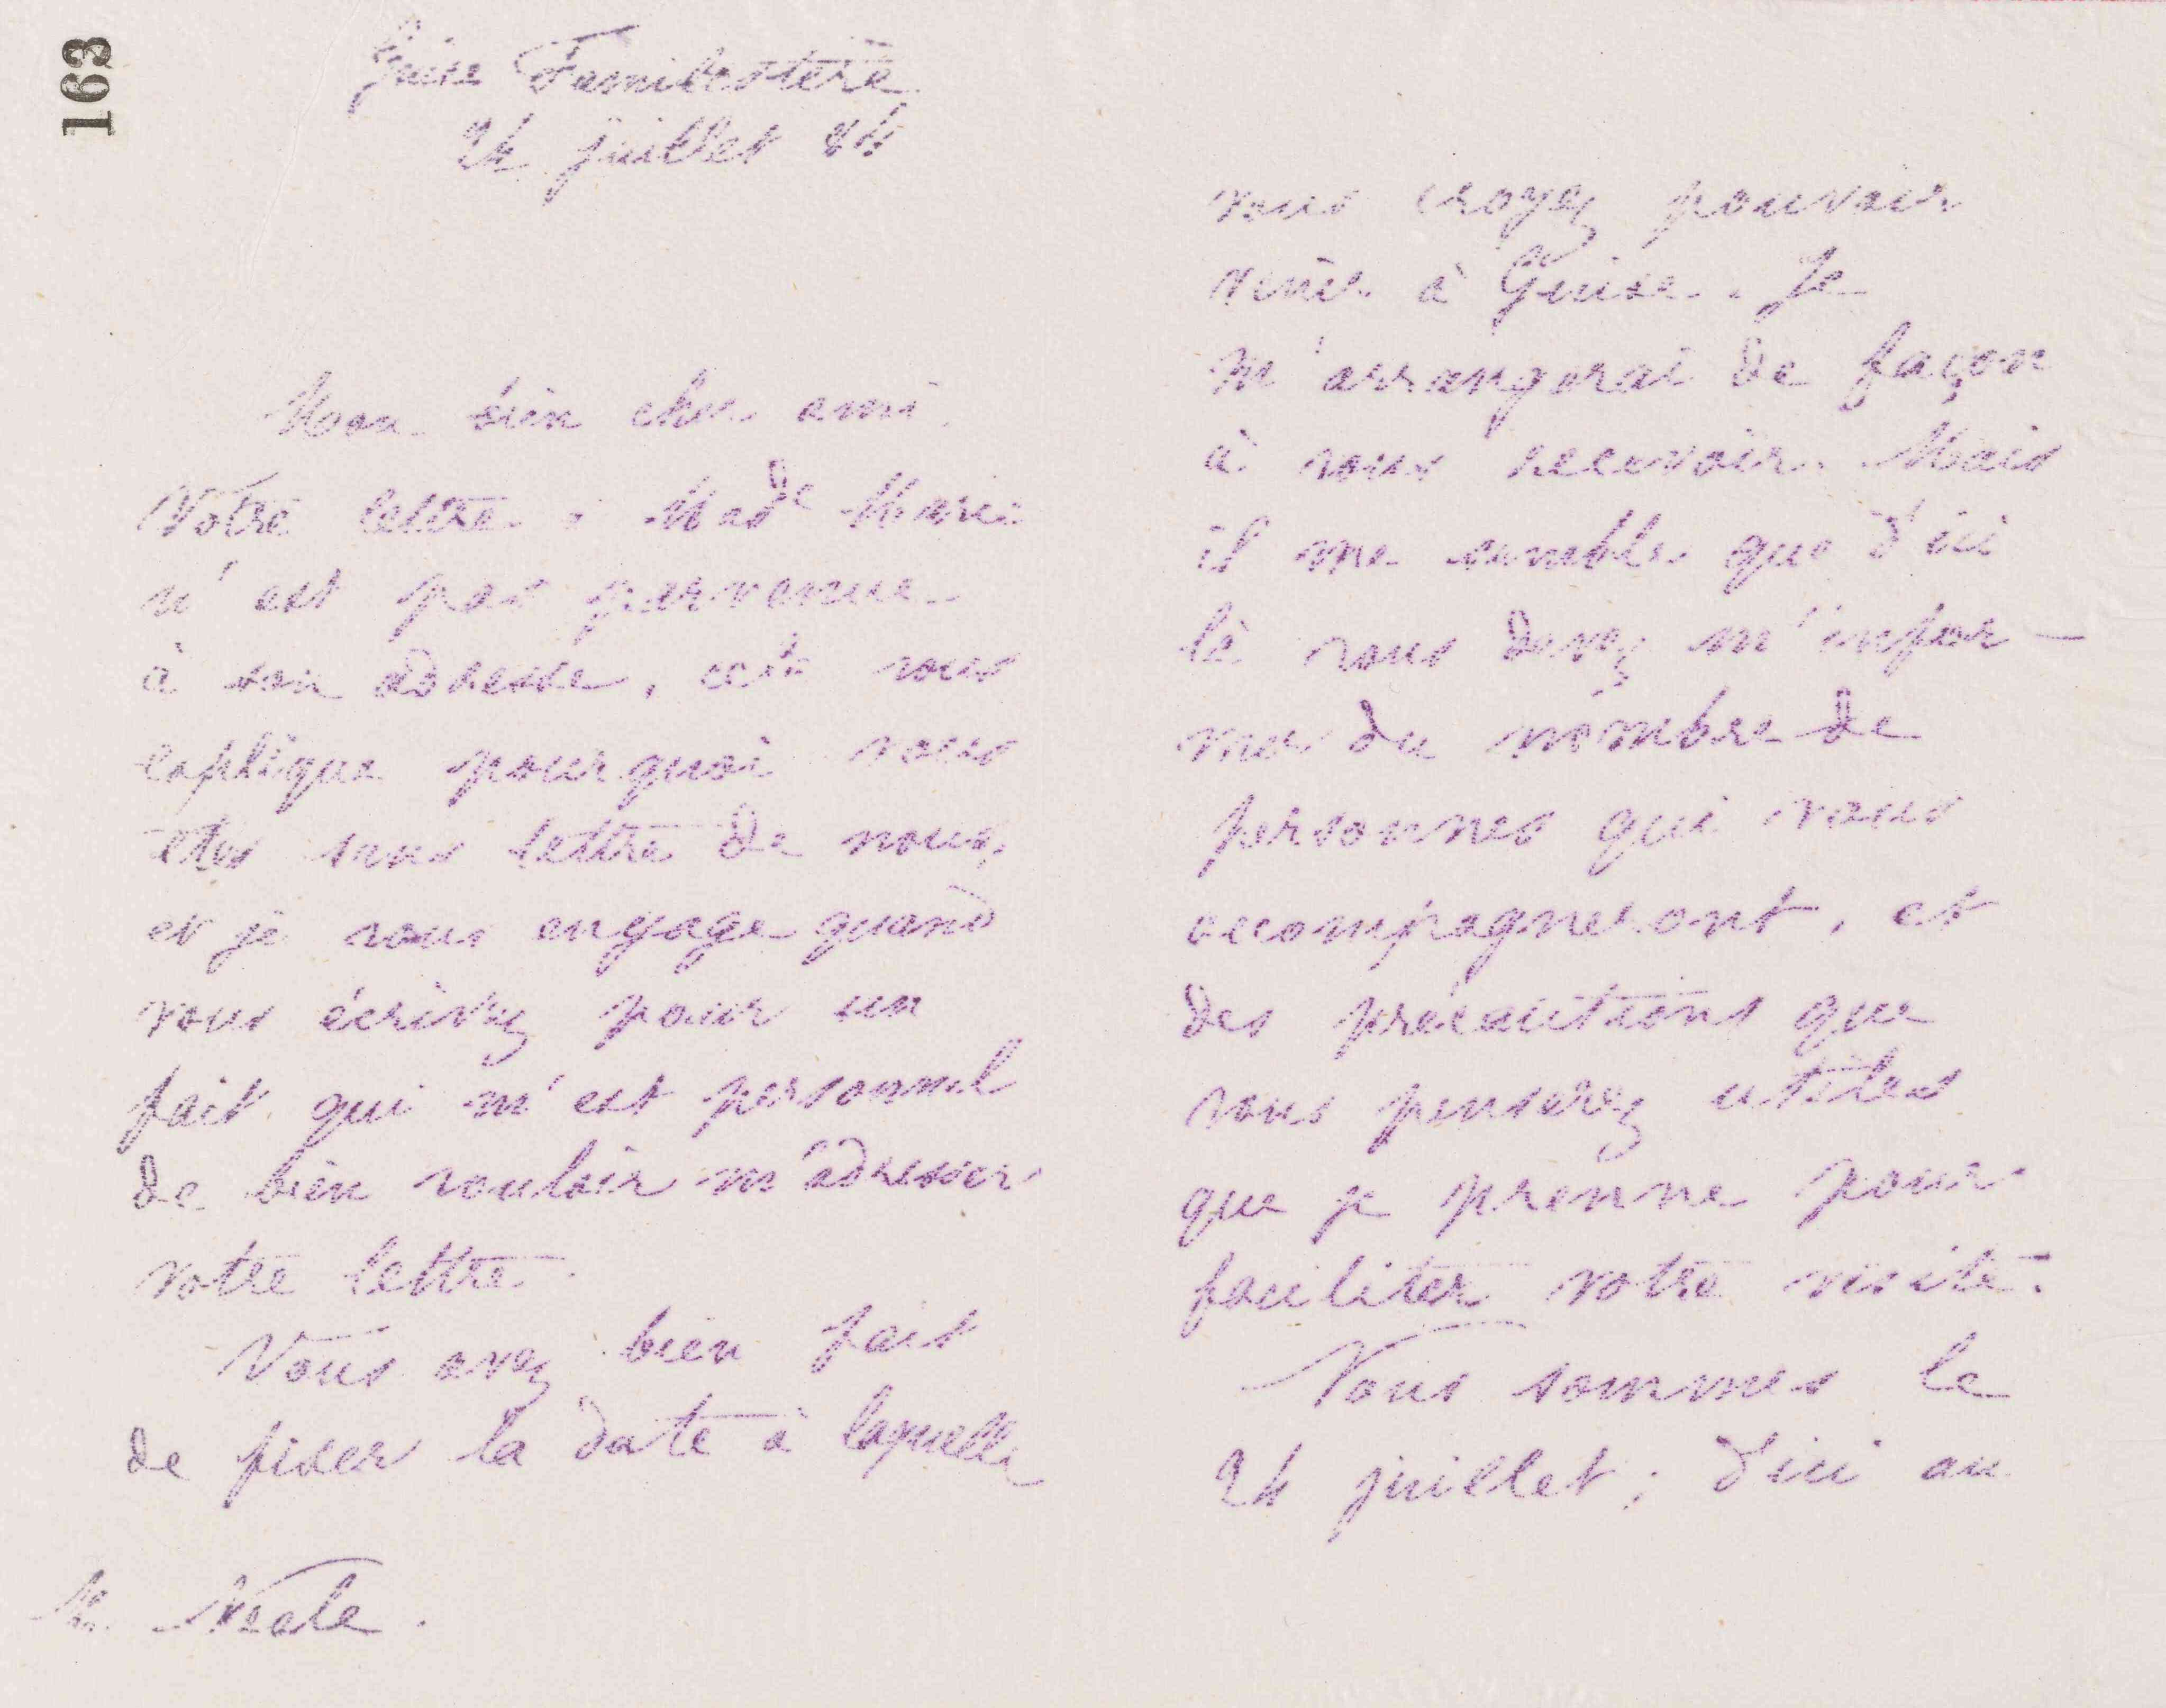 163
Guise Familistère
24 juillet 85
Mon bien cher ami,
Votre lettre à Made Marie
n'est pas parvenue
à son adresse, cela vous
explique pourquoi vous
êtes sans lettre de nous,
et je vous engage quand
vous écrivez pour un
fait qui m'est personnel
de bien vouloir m'adresser
votre lettre.
Vous avez bien fait
de fixer la date à laquelle
M. Neale.
vous croyez pouvoir
venir à Guise. Je
m'arrangerai de façon
à vous recevoir. Mais
il me semble que d'ici
là vous devez m'infor-
mer du nombre de
personnes qui vous
accompagneront, et
des précautions que
vous penserez utiles
que je prenne pour
faciliter votre visite.
Nous sommes le
24 juillet; d'ici au